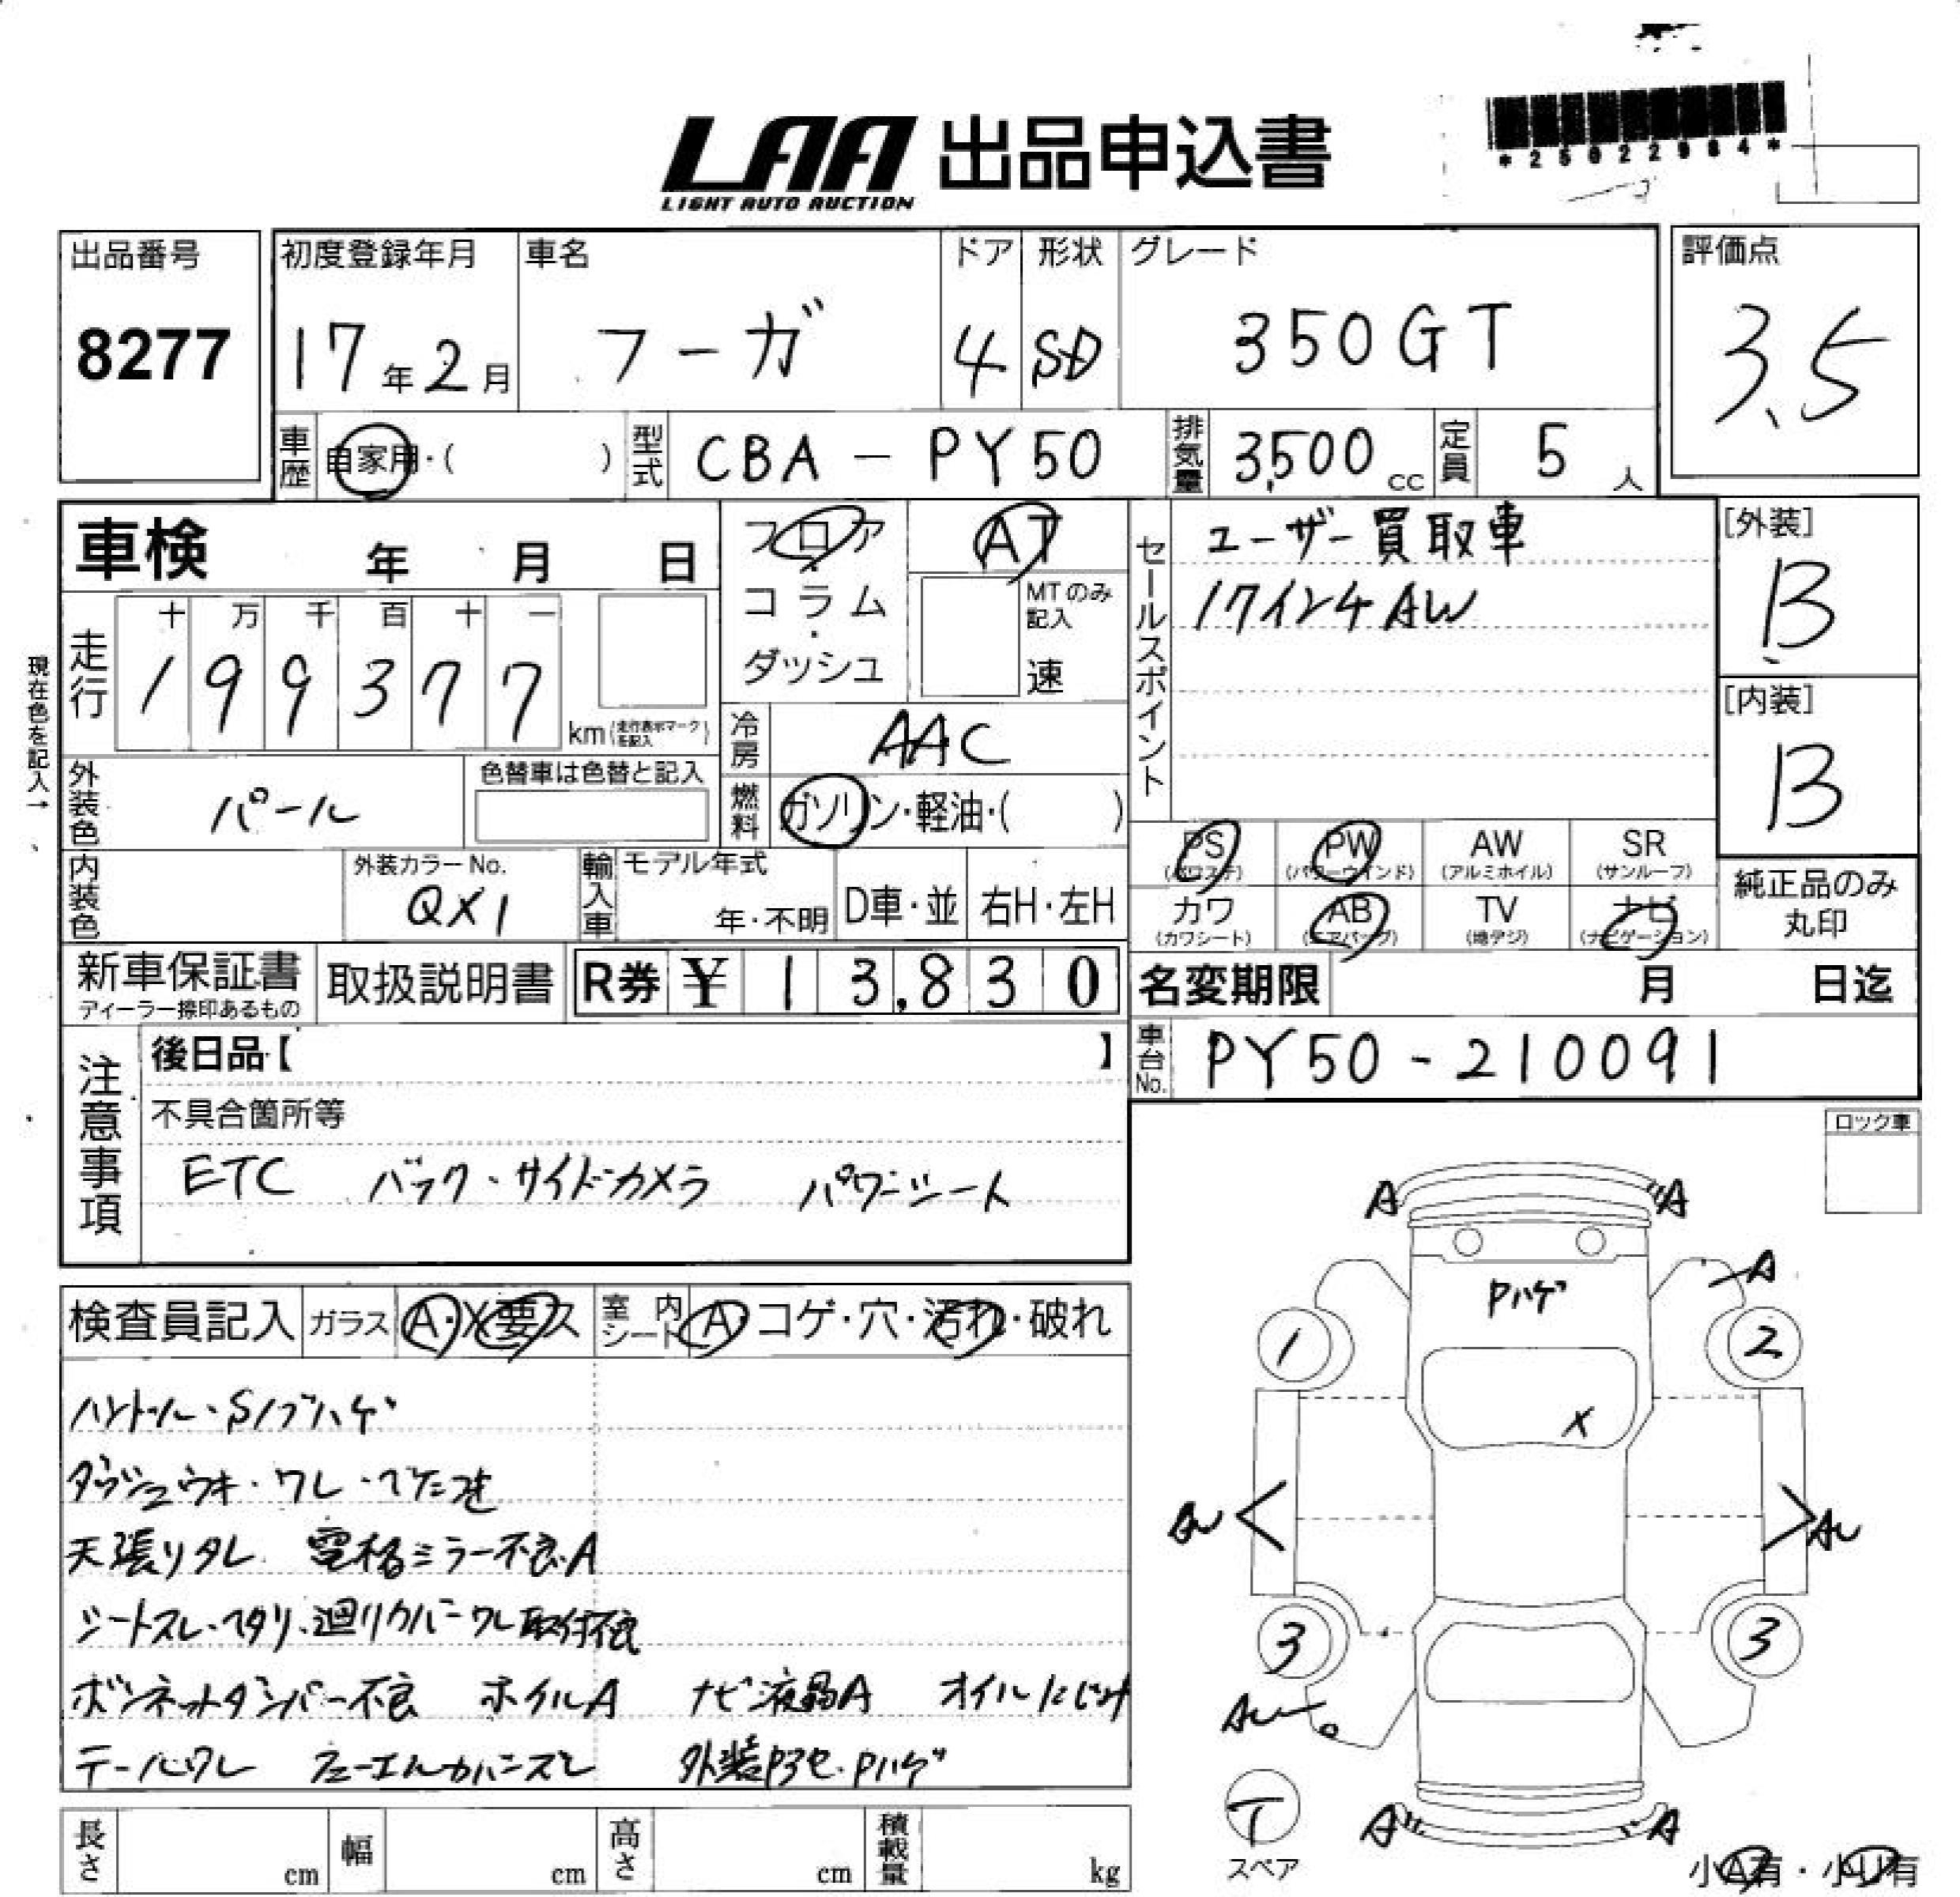 LAA 出品申込書
LIGHT AUTO AUCTION
*25022984*
出品番号
8277
初度登録年月
17年2月
車名
フーガ
ドア
4
形状
SD
グレード
350GT
評価点
3.5
車歴
自家用・( )
型式
CBA-PY50
排気量
3,500cc
定員
5人
車検 年 月 日
フロア
コラム
ダッシュ
AT
MTのみ記入
速
セールスポイント
ユーザー買取車
17インチAW
[外装]
B
[内装]
B
現在色を記入→
走行
十 万 千 百 十 一
1 9 9 3 7 7
km(走行表示マークを記入)
冷房
AAC
外装色
パール
色替車は色替と記入
燃料
ガソリン・軽油・( )
PS (パワステ)
PW (パワーウインド)
AW (アルミホイル)
SR (サンルーフ)
カワ (カワシート)
AB (エアバーグ)
TV (地デジ)
ナビ (ナビゲーション)
純正品のみ
丸印
内装色
外装カラーNo.
QX1
輸入車
モデル年式
年・不明
D車・並
右H・左H
新車保証書
ディーラー捺印あるもの
取扱説明書
R券 ¥ 13,830
名変期限 月 日迄
車台No.
PY50-210091
注意事項
後日品【 】
不具合箇所等
ETC バック・サイドカメラ パワーシート
ロック車
検査員記入
ガラス A・X要ス
室内シート A・コゲ・穴・汚れ・破れ
ハンドル・Sノブハゲ
ダッシュウキ・ワレ・ベタつき
天張りタレ 電格ミラー不良 A
シートスレ・ヘタリ・廻りカバーワレ取付不良
ボンネットダンパー不良 ホイルA ナビ液晶A オイルにじみ
テールワレ フューエルカバーズレ 外装P3セ・Pハゲ
A A
A
Pハゲ
1 2
X
AU AU
3 3
AU
T
スペア
A A
小A有・小U有
長さ cm
幅 cm
高さ cm
積載量 kg